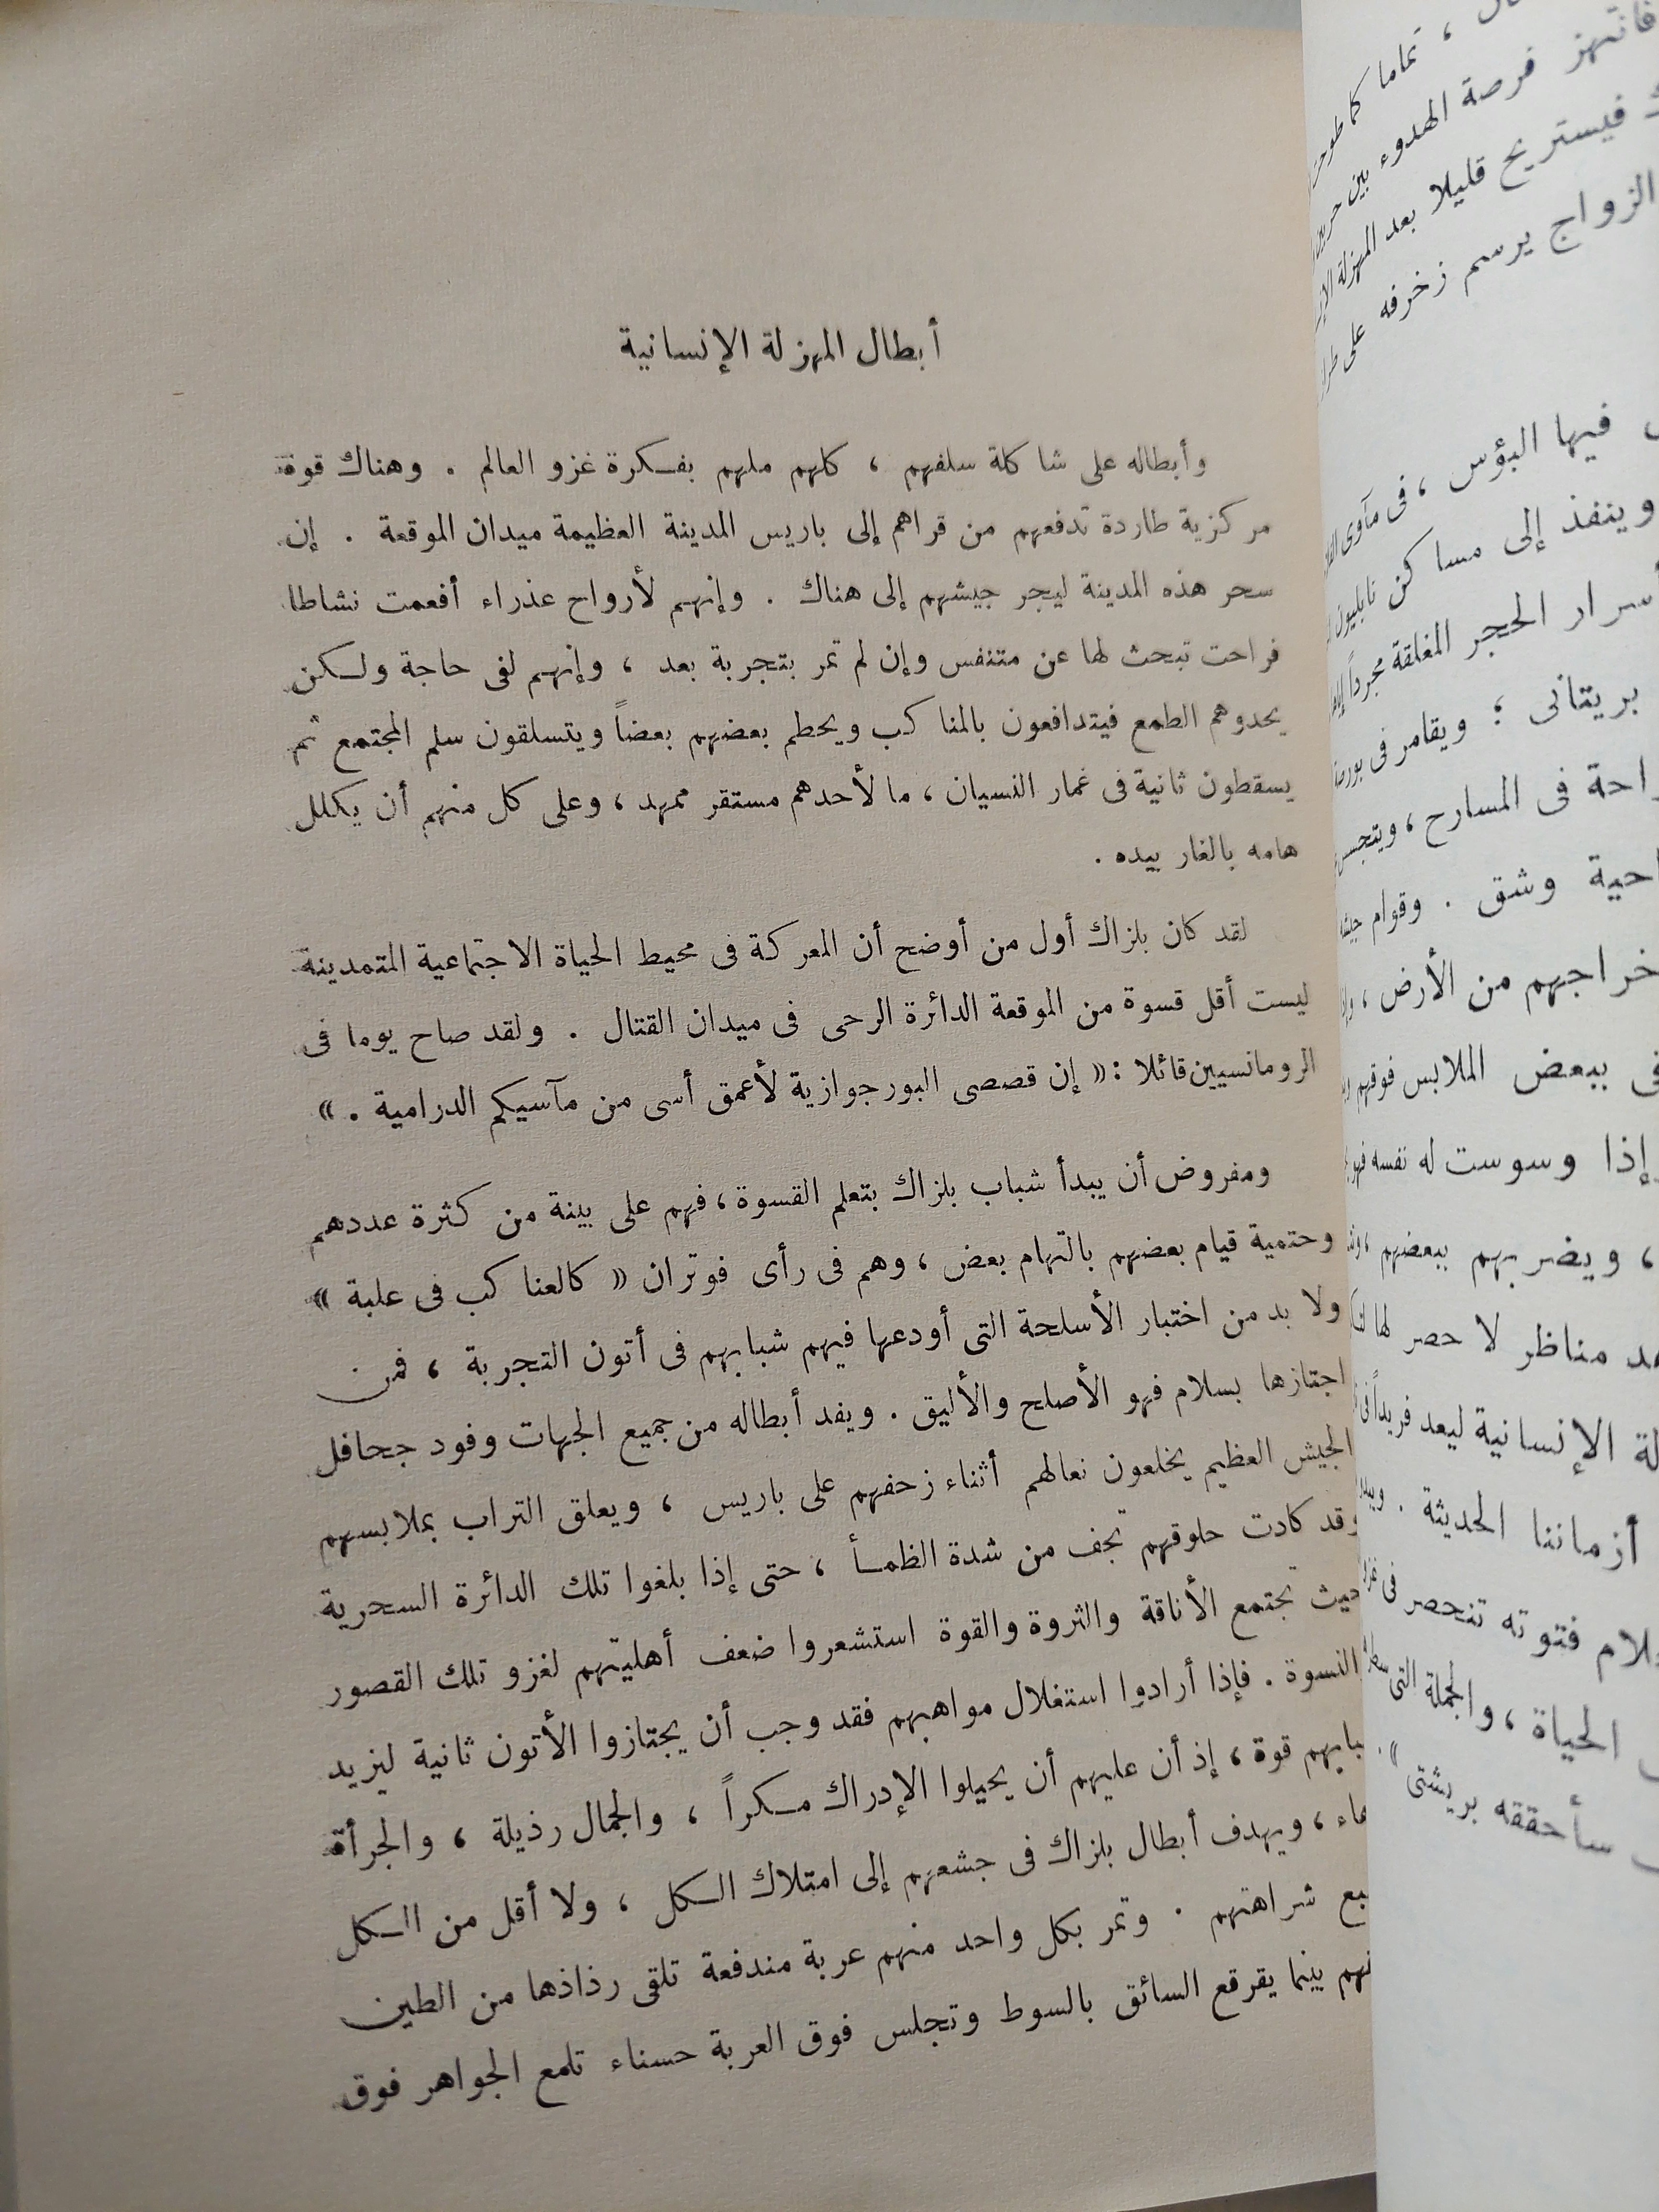 أبطال المهزلة الإنسانية
وأبطاله على شاكلة سلفهم ، كلهم ملهم بفكرة غزو العالم . وهناك قوة
مركزية طاردة تدفعهم من قراهم إلى باريس المدينة العظيمة ميدان الموقعة . إن
سحر هذه المدينة ليجر جيشهم إلى هناك . وإنهم لأرواح عذراء أفعمت نشاطا
فراحت تبحث لها عن متنفس وإن لم تمر بتجربة بعد ، وإنهم لفى حاجة ولكن
يحدوهم الطمع فيتدافعون بالمناكب ويحطم بعضهم بعضاً ويتسلقون سلم المجتمع ثم
يسقطون ثانية فى غمار النسيان ، ما لأحدهم مستقر ممهد ، وعلى كل منهم أن يكلل
هامه بالغار بيده .
لقد كان بلزاك أول من أوضح أن المعركة فى محيط الحياة الاجتماعية المتمدينة
ليست أقل قسوة من الموقعة الدائرة الرحى فى ميدان القتال . ولقد صاح يوما فى
الرومانسيين قائلا : « إن قصصى البورجوازية لأعمق أسى من مآسيكم الدرامية . »
ومفروض أن يبدأ شباب بلزاك بتعلم القسوة ، فهم على بينة من كثرة عددهم
وحتمية قيام بعضهم بالتهام بعض ، وهم فى رأى فوتران « كالعناكب فى علبة »
ولا بد من اختبار الأسلحة التى أودعها فيهم شبابهم فى أتون التجربة ، فمن
اجتازها بسلام فهو الأصلح والأليق . ويفد أبطاله من جميع الجهات وفود جحافل
الجيش العظيم يخلعون نعالهم أثناء زحفهم على باريس ، ويعلق التراب بملابسهم
وقد كادت حلوقهم تجف من شدة الظمأ ، حتى إذا بلغوا تلك الدائرة السحرية
حيث تجتمع الأناقة والثروة والقوة استشعروا ضعف أهليتهم لغزو تلك القصور
النسوة . فإذا أرادوا استغلال مواهبهم فقد وجب أن يجتازوا الأتون ثانية ليزيد
قوة ، إذ أن عليهم أن يحيلوا الإدراك مكراً ، والجمال رذيلة ، والجرأة
، ويهدف أبطال بلزاك فى جشعهم إلى امتلاك الكل ، ولا أقل من الكل
شراهتهم . وتمر بكل واحد منهم عربة مندفعة تلقى رذاذها من الطين
بينما يقرقع السائق بالسوط وتجلس فوق العربة حسناء تلمع الجواهر فوق
، تماما كما
فانتهز فرصة الهدوء بين
فيستريح قليلا بعد المهزلة
الزواج يرسم زخرفه على
فيها البؤس ، فى مآوى
وينفذ إلى مساكن نابليون
الحجر المغلقة مجرداً
بريتانى ؛ ويقامر فى
فى المسارح ، ويتجسس
وشق . وقوام
من الأرض ،
ببعض الملابس فوقهم
وسوست له نفسه
، ويضربهم ببعضهم
مناظر لا حصر لها
الإنسانية ليعد فريداً
أزماننا الحديثة .
فتوته تنحصر فى
الحياة ، والجملة التى
سأحققه بريشتى » .